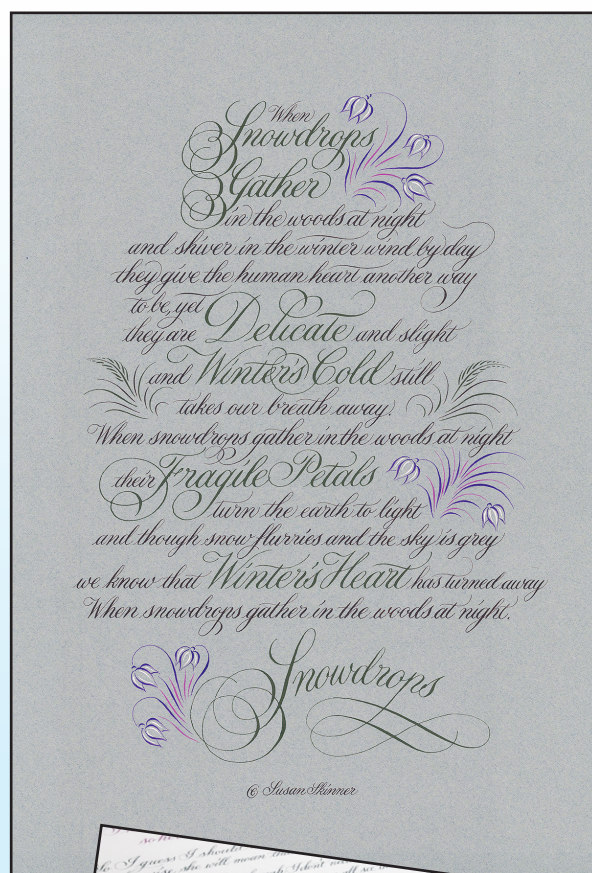 When
Snowdrops
Gather
in the woods at night
and shiver in the winter wind by day
they give the human heart another way
to be, yet
they are Delicate and slight
and Winter's Cold still
takes our breath away.
When snowdrops gather in the woods at night
their Fragile Petals
turn the earth to light
and though snow flurries and the sky is grey
we know that Winter's Heart has turned away
When snowdrops gather in the woods at night.
Snowdrops
© Susan Skinner
so he
I guess I should
she will mean